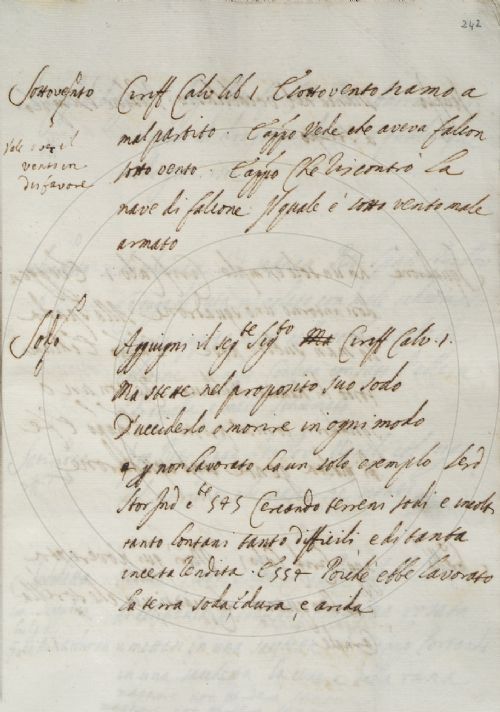 242
Sottovento
Vale cioè il
vento in
disfavore
Ciriff Calv lib 1. E sottovento siamo a
mal partito. E appo Vede che aveva falcon
sotto vento. E appo Che riscontrò la
nave di falcone Il quale è sotto vento male
armato
Sodo
Aggiugni il seg.te Sig.to Ciriff Calv. 1.
Ma stette nel proposito suo sodo
D'ucciderlo o morire in ogni modo
non lavorato da un solo exemplo Serd
Stor Ind 545 Cercando terreni sodi e incolti
tanto lontani tanto difficili, e di tanta
incerta rendita E 554 Poiché ebbe lavorato
la terra soda, e dura, e arida